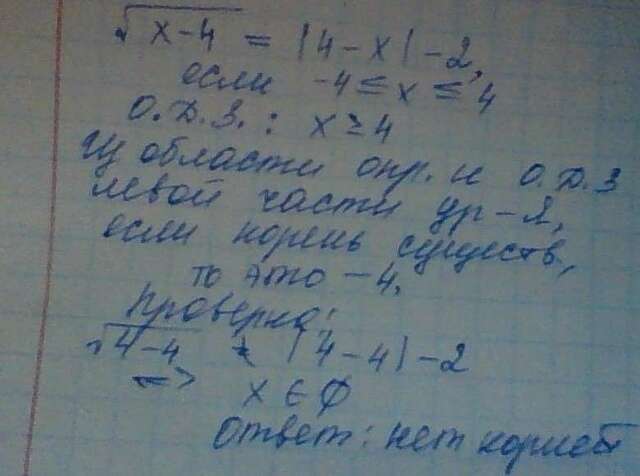 √x-4 = |4-x| -2,
если -4 ≤ x ≤ 4
О.Д.З.: x ≥ 4
Из области опр. и О.Д.З
левой части ур-я,
если корень существ,
то это - 4.
Проверка:
√4-4 ≠ |4-4| -2
=> x ∈ ∅
Ответ: нет корней